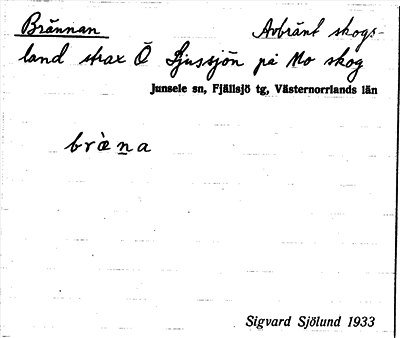 Brännan Avbränt skogs-
land strax Ö Ljussjön på Mo skog
Junsele sn, Fjällsjö tg, Västernorrlands län
brὰn̲a
Sigvard Sjölund 1933